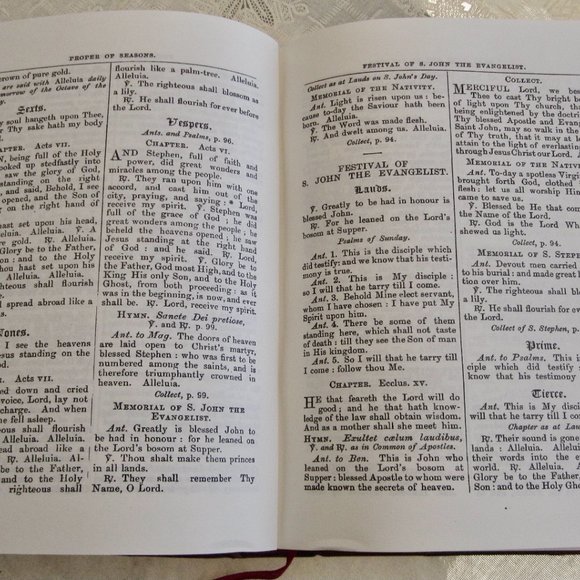 PROPER OF SEASONS.
crown of pure gold.
are said with Alleluia daily
morrow of the Octave of the
Sexts.
y soul hangeth upon Thee,
Thy sake hath my body
hapter. Acts VII.
N, being full of the Holy
ooked up stedfastly into
saw the glory of God,
standing on the right
, and said, Behold, I see
opened, and the Son of
on the right hand of
ast set upon his head,
Alleluia, Alleluia. ℣. A
gold. ℟. Alleluia.
Glory be to the Father,
and to the Holy
hast set upon his
Alleluia.
righteous shall flourish
I spread abroad like a
Nones.
I see the heavens
Jesus standing on the
God.
Acts VII.
eled down and cried
voice, Lord, lay not
charge. And when
he fell asleep.
eous shall flourish
Alleluia, Alleluia.
ead abroad like a
℟. Alleluia. Al-
be to the Father,
and to the Holy
righteous shall
flourish like a palm-tree. Alleluia.
Alleluia.
℣. The righteous shall blossom as
a lily.
℟. He shall flourish for ever before
the Lord.
Vespers.
Ants. and Psalms, p. 96.
Chapter. Acts VI.
AND Stephen, full of faith and
power, did great wonders and
miracles among the people.
℟. They ran upon him with one
accord, and cast him out of the
city, praying, and saying : * Lord,
receive my spirit. ℣. Stephen,
full of the grace of God : he did
great wonders among the people ; he
beheld the heavens opened ; he saw
Jesus standing at the right hand
of God : and he said. ℟. Lord,
receive my spirit. ℣. Glory be to
the Father, God most High, and to the
King His only Son, and to the Holy
Ghost, from both proceeding : as it
was in the beginning, is now, and ever
shall be. ℟. Lord, receive my spirit.
Hymn. Sancte Dei pretiose,
℣. and ℟. p. 99.
Ant. to Mag. The doors of heaven
are laid open to Christ's martyr,
blessed Stephen : who was first to be
numbered among the saints, and is
therefore triumphantly crowned in
heaven. Alleluia.
Collect, p. 99.
Memorial of S. John the
Evangelist.
Ant. Greatly is blessed John to
be had in honour : for he leaned on
the Lord's bosom at Supper.
℣. Thou shalt make them princes
in all lands.
℟. They shall remember Thy
Name, O Lord.
FESTIVAL OF S. JOHN THE EVANGELIST.
Collect as at Lauds on S. John's Day.
Memorial of the Nativity.
Ant. Light is risen upon us : be-
cause to-day the Saviour hath been
born. Alleluia.
℣. The Word was made flesh.
℟. And dwelt among us. Alleluia.
Collect, p. 94.
FESTIVAL OF
S. JOHN THE EVANGELIST.
Lauds.
℣. Greatly to be had in honour is
blessed John.
℟. For he leaned on the Lord's
bosom at Supper.
Psalms of Sunday.
Ant. 1. This is the disciple which
did testify : and we know that his testi-
mony is true.
Ant. 2. This is My disciple :
so I will that he tarry till I come.
Ant. 3. Behold Mine elect servant,
whom I have chosen : I have put My
Spirit upon him.
Ant. 4. There be some of them
standing here, which shall not taste
of death : till they see the Son of man
in His kingdom.
Ant. 5. So I will that he tarry till
I come : follow thou Me.
Chapter. Ecclus. XV.
HE that feareth the Lord will do
good ; and he that hath know-
ledge of the law shall obtain wisdom.
And as a mother shall she meet him.
Hymn. Exultet cœlum laudibus,
℣. and ℟. as in Common of Apostles.
Ant. to Ben. This is John who
leaned on the Lord's bosom at
Supper : blessed Apostle to whom were
made known the secrets of heaven.
Collect.
MERCIFUL Lord, we bese
Thee to cast Thy bright b
of light upon Thy church, th
being enlightened by the doctri
Thy blessed Apostle and Evang
Saint John, may so walk in the
of Thy truth, that it may at l
attain to the light of everlasting
through Jesus Christ our Lord. A
Memorial of the Nativ
Ant. To-day a spotless Virgin
brought forth God, clothed
flesh : let us all worship Him
came to save us.
℣. Blessed be He that com
the Name of the Lord.
℟. God is the Lord Wh
shewed us light.
Collect, p. 94.
Memorial of S. Steph
Ant. Devout men carried
to his burial : and made great l
over him.
℣. The righteous shall bl
a lily.
℟. He shall flourish for
the Lord.
Collect of S. Stephen, p.
Prime.
Ant. to Psalms. This i
ciple which did testify
know that his testimony
Tierce.
Ant. This is My discip
will that he tarry till I com
Chapter as at Laud
℟. Their sound is gone
lands : Alleluia. Allel
their words into the e
world. ℟. Alleluia. A
Glory be to the Father,
Son : and to the Holy Ghost